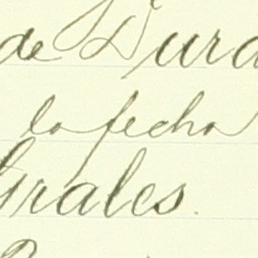 de Dura
la fecha
Grales.